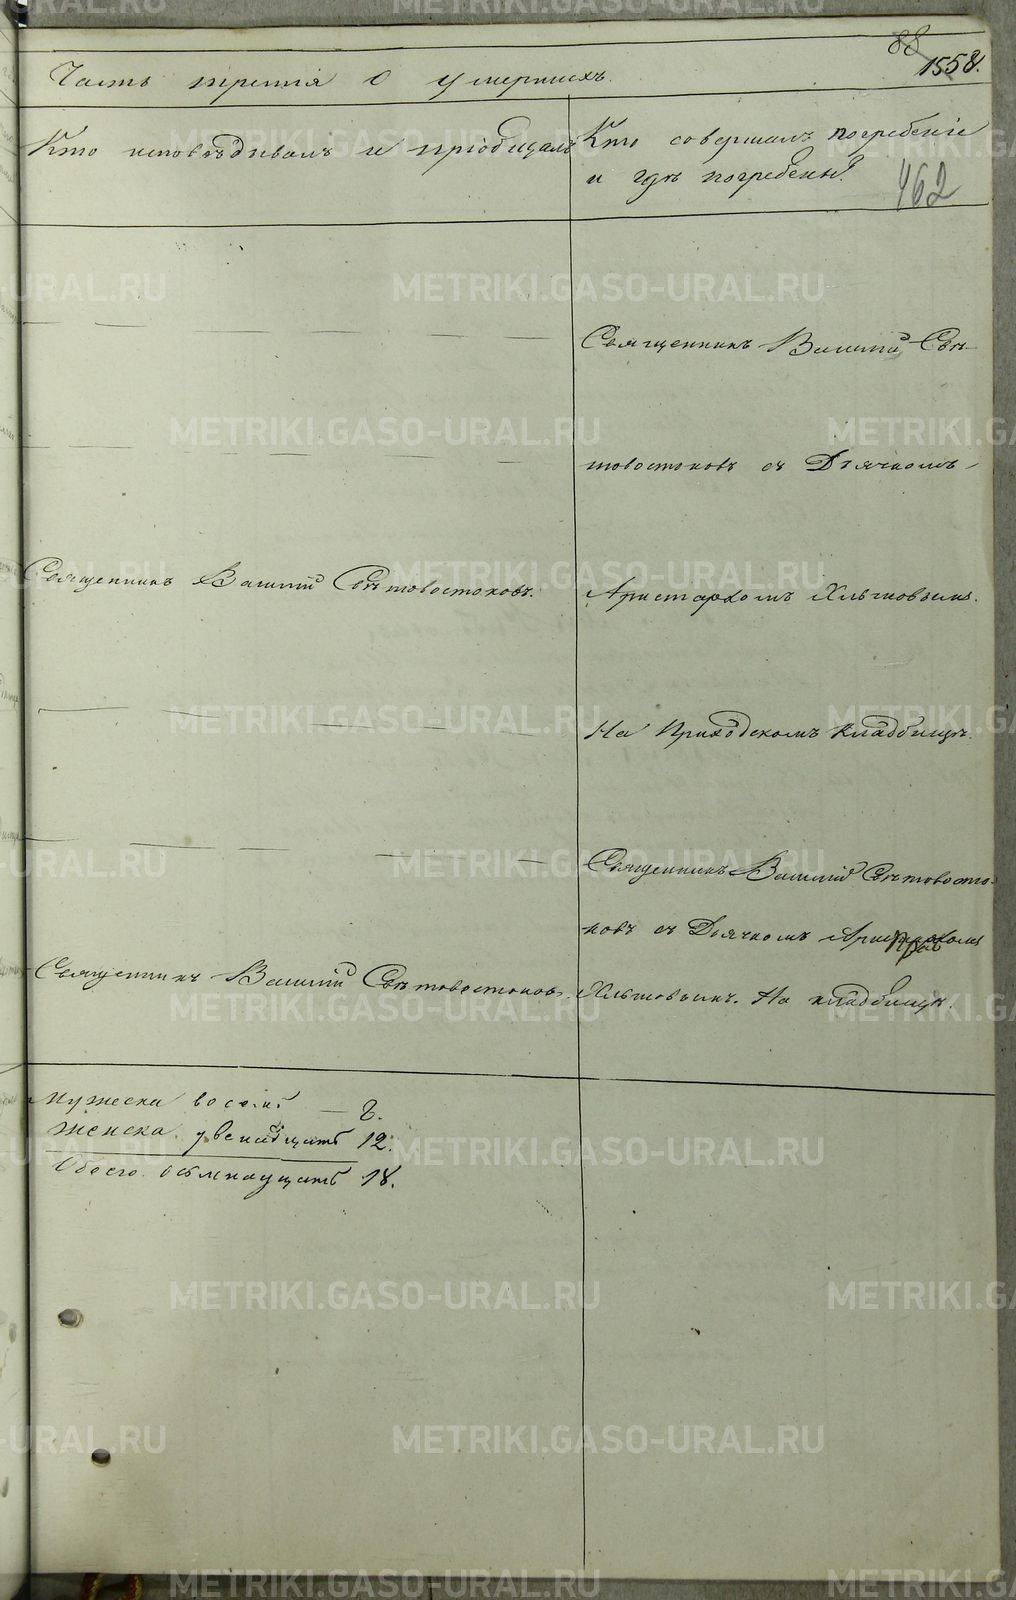 88
1558.
Часть третія о умершихъ.
Кто исповѣдывалъ и пріобщалъ
Кто совершалъ погребеніе
и гдѣ погребены?
462
Священникъ Василій Свѣ-
товостоковъ съ Дьячкомъ
Священникъ Василій Свѣтовостоковъ.
Аристархомъ Хлыновымъ.
На Приходскомъ кладбищѣ.
Священникъ Василій Свѣтовосто-
ковъ съ Дьячкомъ Аристархомъ
Священникъ Василій Свѣтовостоковъ.
Хлыновымъ. На кладбищѣ.
Мужеска восемь — 8.
Женска двенадцать 12.
Обоего осьмнадцать 18.
METRIKI.GASO-URAL.RU